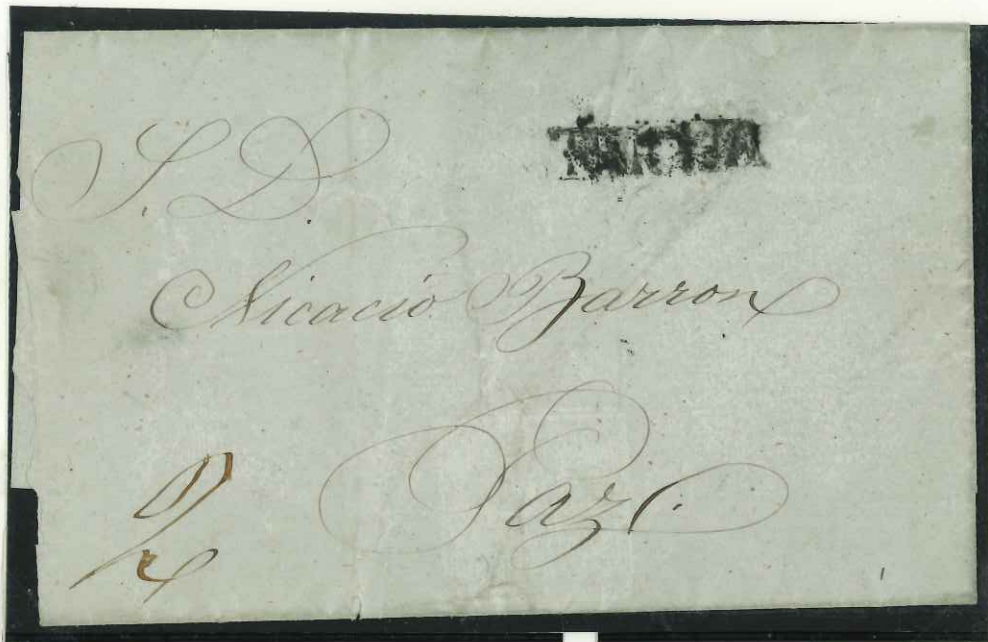 S. D.
Nicacio Barron
Paz.